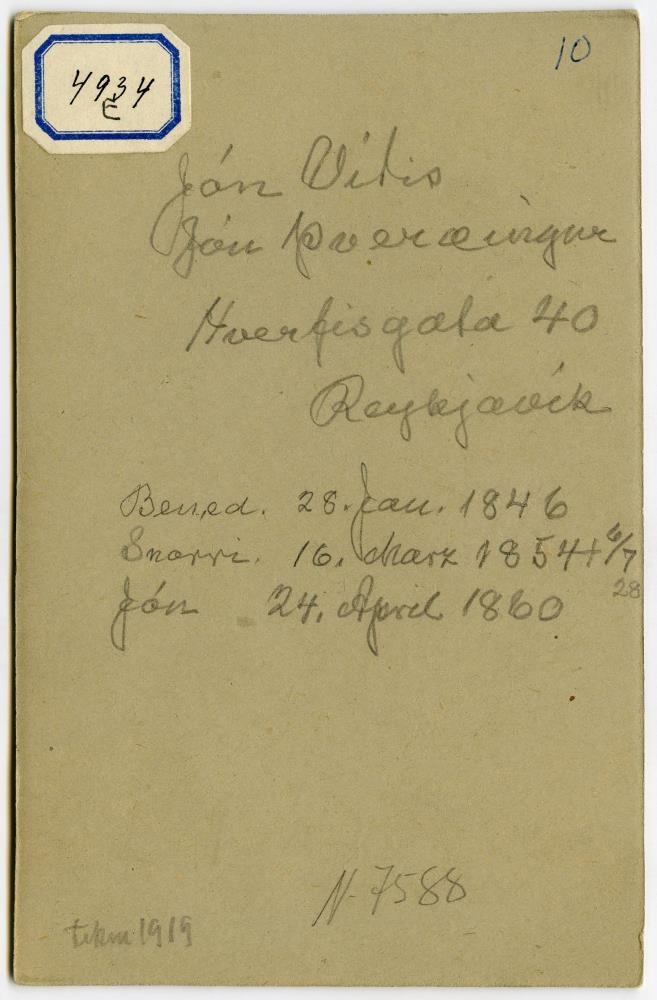 10
4934
c
Jón Vídis
Jón Þveræingur
Hverfisgata 40
Reykjavík
Bened. 28. Jan. 1846
Snorri. 16. Marz 1854 + 6/7
28
Jón 24. April 1860
N-7588
tekin 1919